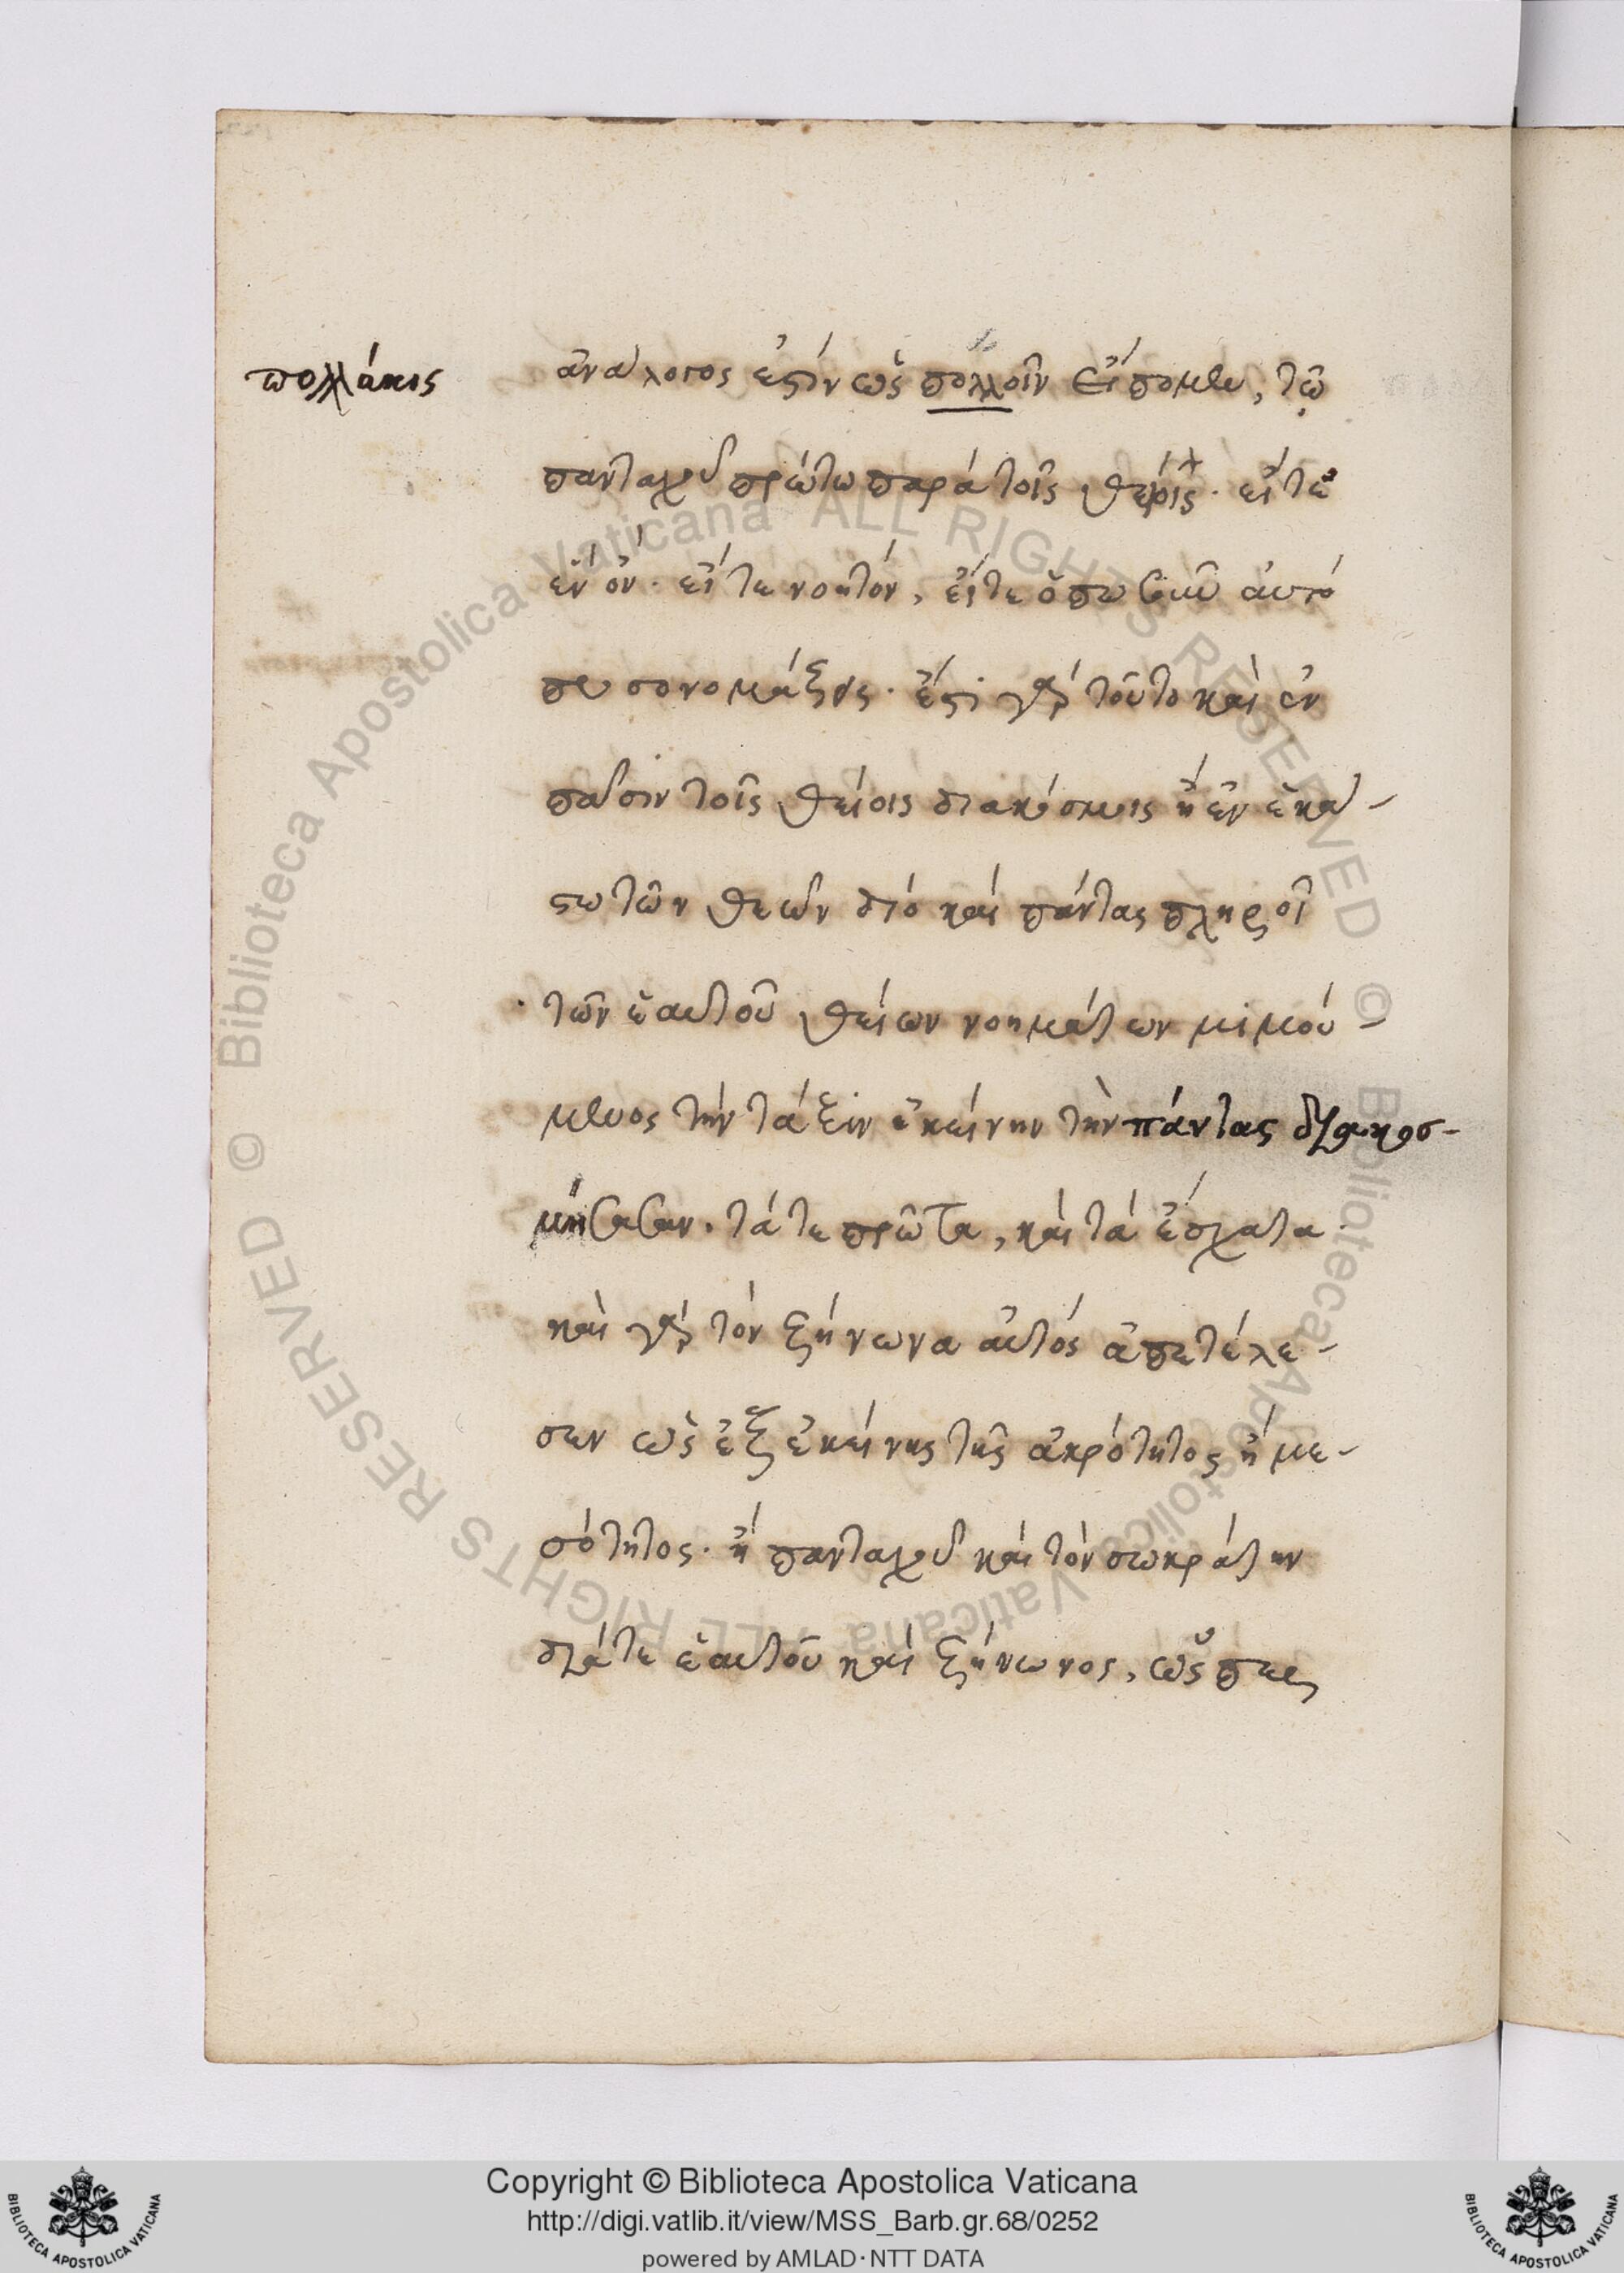 πολλάκις
ἀνάλογος ἐστὶν ὡς πολλοῖν εἴπομεν, τῷ
πανταχοῦ πρώτω παρὰ τοῖς θεοῖς· εἴτε
ἓν ὄν· εἴτε νοητόν, εἴτε ὅπωσοῦν αὐτό
πως ονομάζης· ἔστι γὰρ τοῦτο καὶ ἐν
πᾶσιν τοῖς θείοις διακόσμοις ἢ ἐν ἑκά-
στω τῶν θεῶν διό καὶ πάντας πληροῖ
τῶν ἑαυτοῦ θείων νοημάτων μιμού-
μενος τὴν τάξιν ἐκείνην τὴν πάντας διακοσ-
μήσασαν· τά τε πρῶτα, καὶ τὰ ἔσχατα
καὶ γὰρ τὸν ζήνωνα αὐτός ἀπετέλε-
σεν ὡς ἐξ ἐκείνης τῆς ἀκρότητος ἡ με-
σότητος· ἢ πανταχοῦ καὶ τὸν σωκράτην
διά τε ἑαυτοῦ καὶ ζήνωνος, ὥσπερ
Biblioteca Apostolica Vaticana ALL RIGHTS RESERVED ©
Biblioteca Apostolica Vaticana ALL RIGHTS RESERVED ©
Copyright © Biblioteca Apostolica Vaticana
http://digi.vatlib.it/view/MSS_Barb.gr.68/0252
powered by AMLAD·NTT DATA
BIBLIOTECA APOSTOLICA VATICANA
BIBLIOTECA APOSTOLICA VATICANA